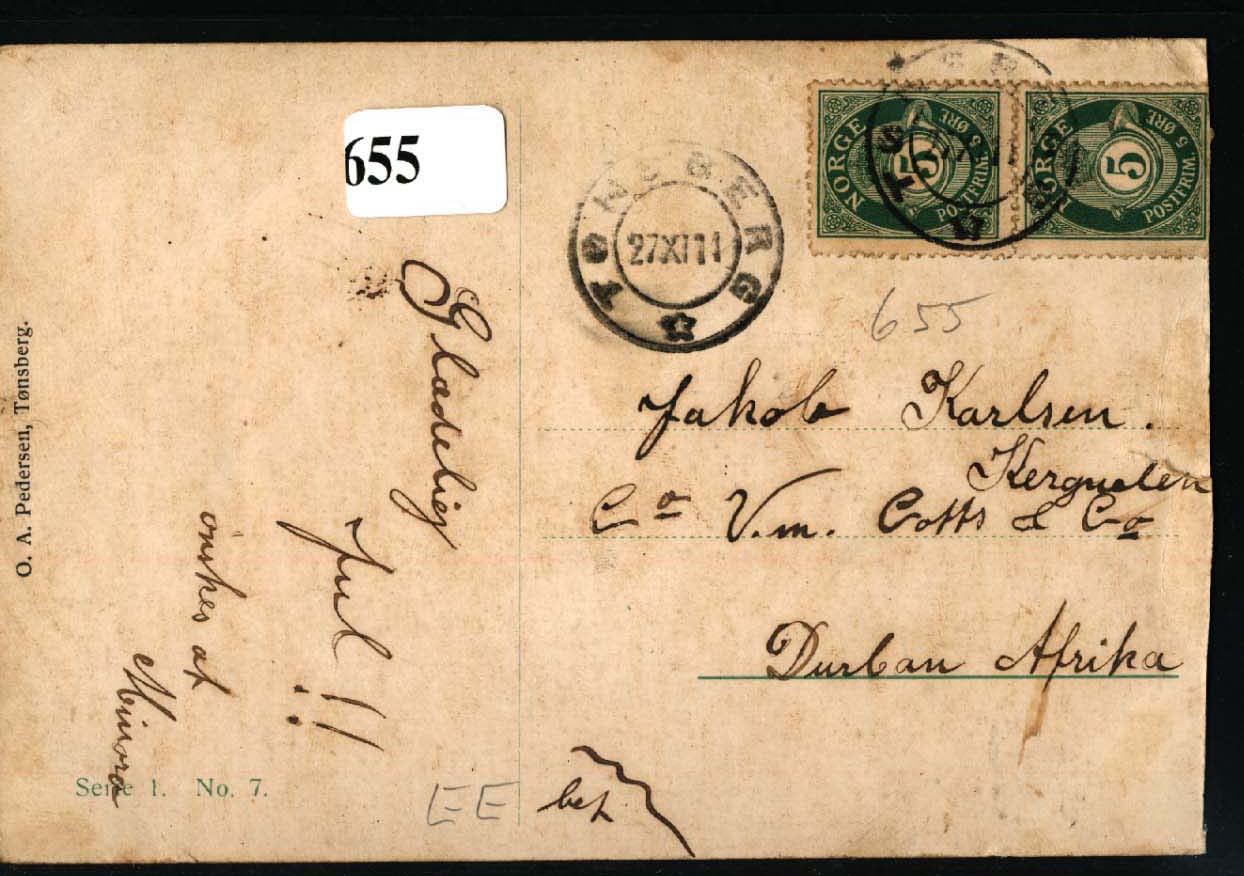 655
TØNSBERG
27 XI 11
NORGE
5
POSTFRIM 5 ØRE
NORGE
5
POSTFRIM 5 ØRE
655
Jakob Karlsen.
Kerguelen
Co V.m. Cotts & Co
Durban Afrika
bet.
Glædelig
Jul!!
ønskes af
O. A. Pedersen, Tønsberg.
Serie 1. No. 7.
EE